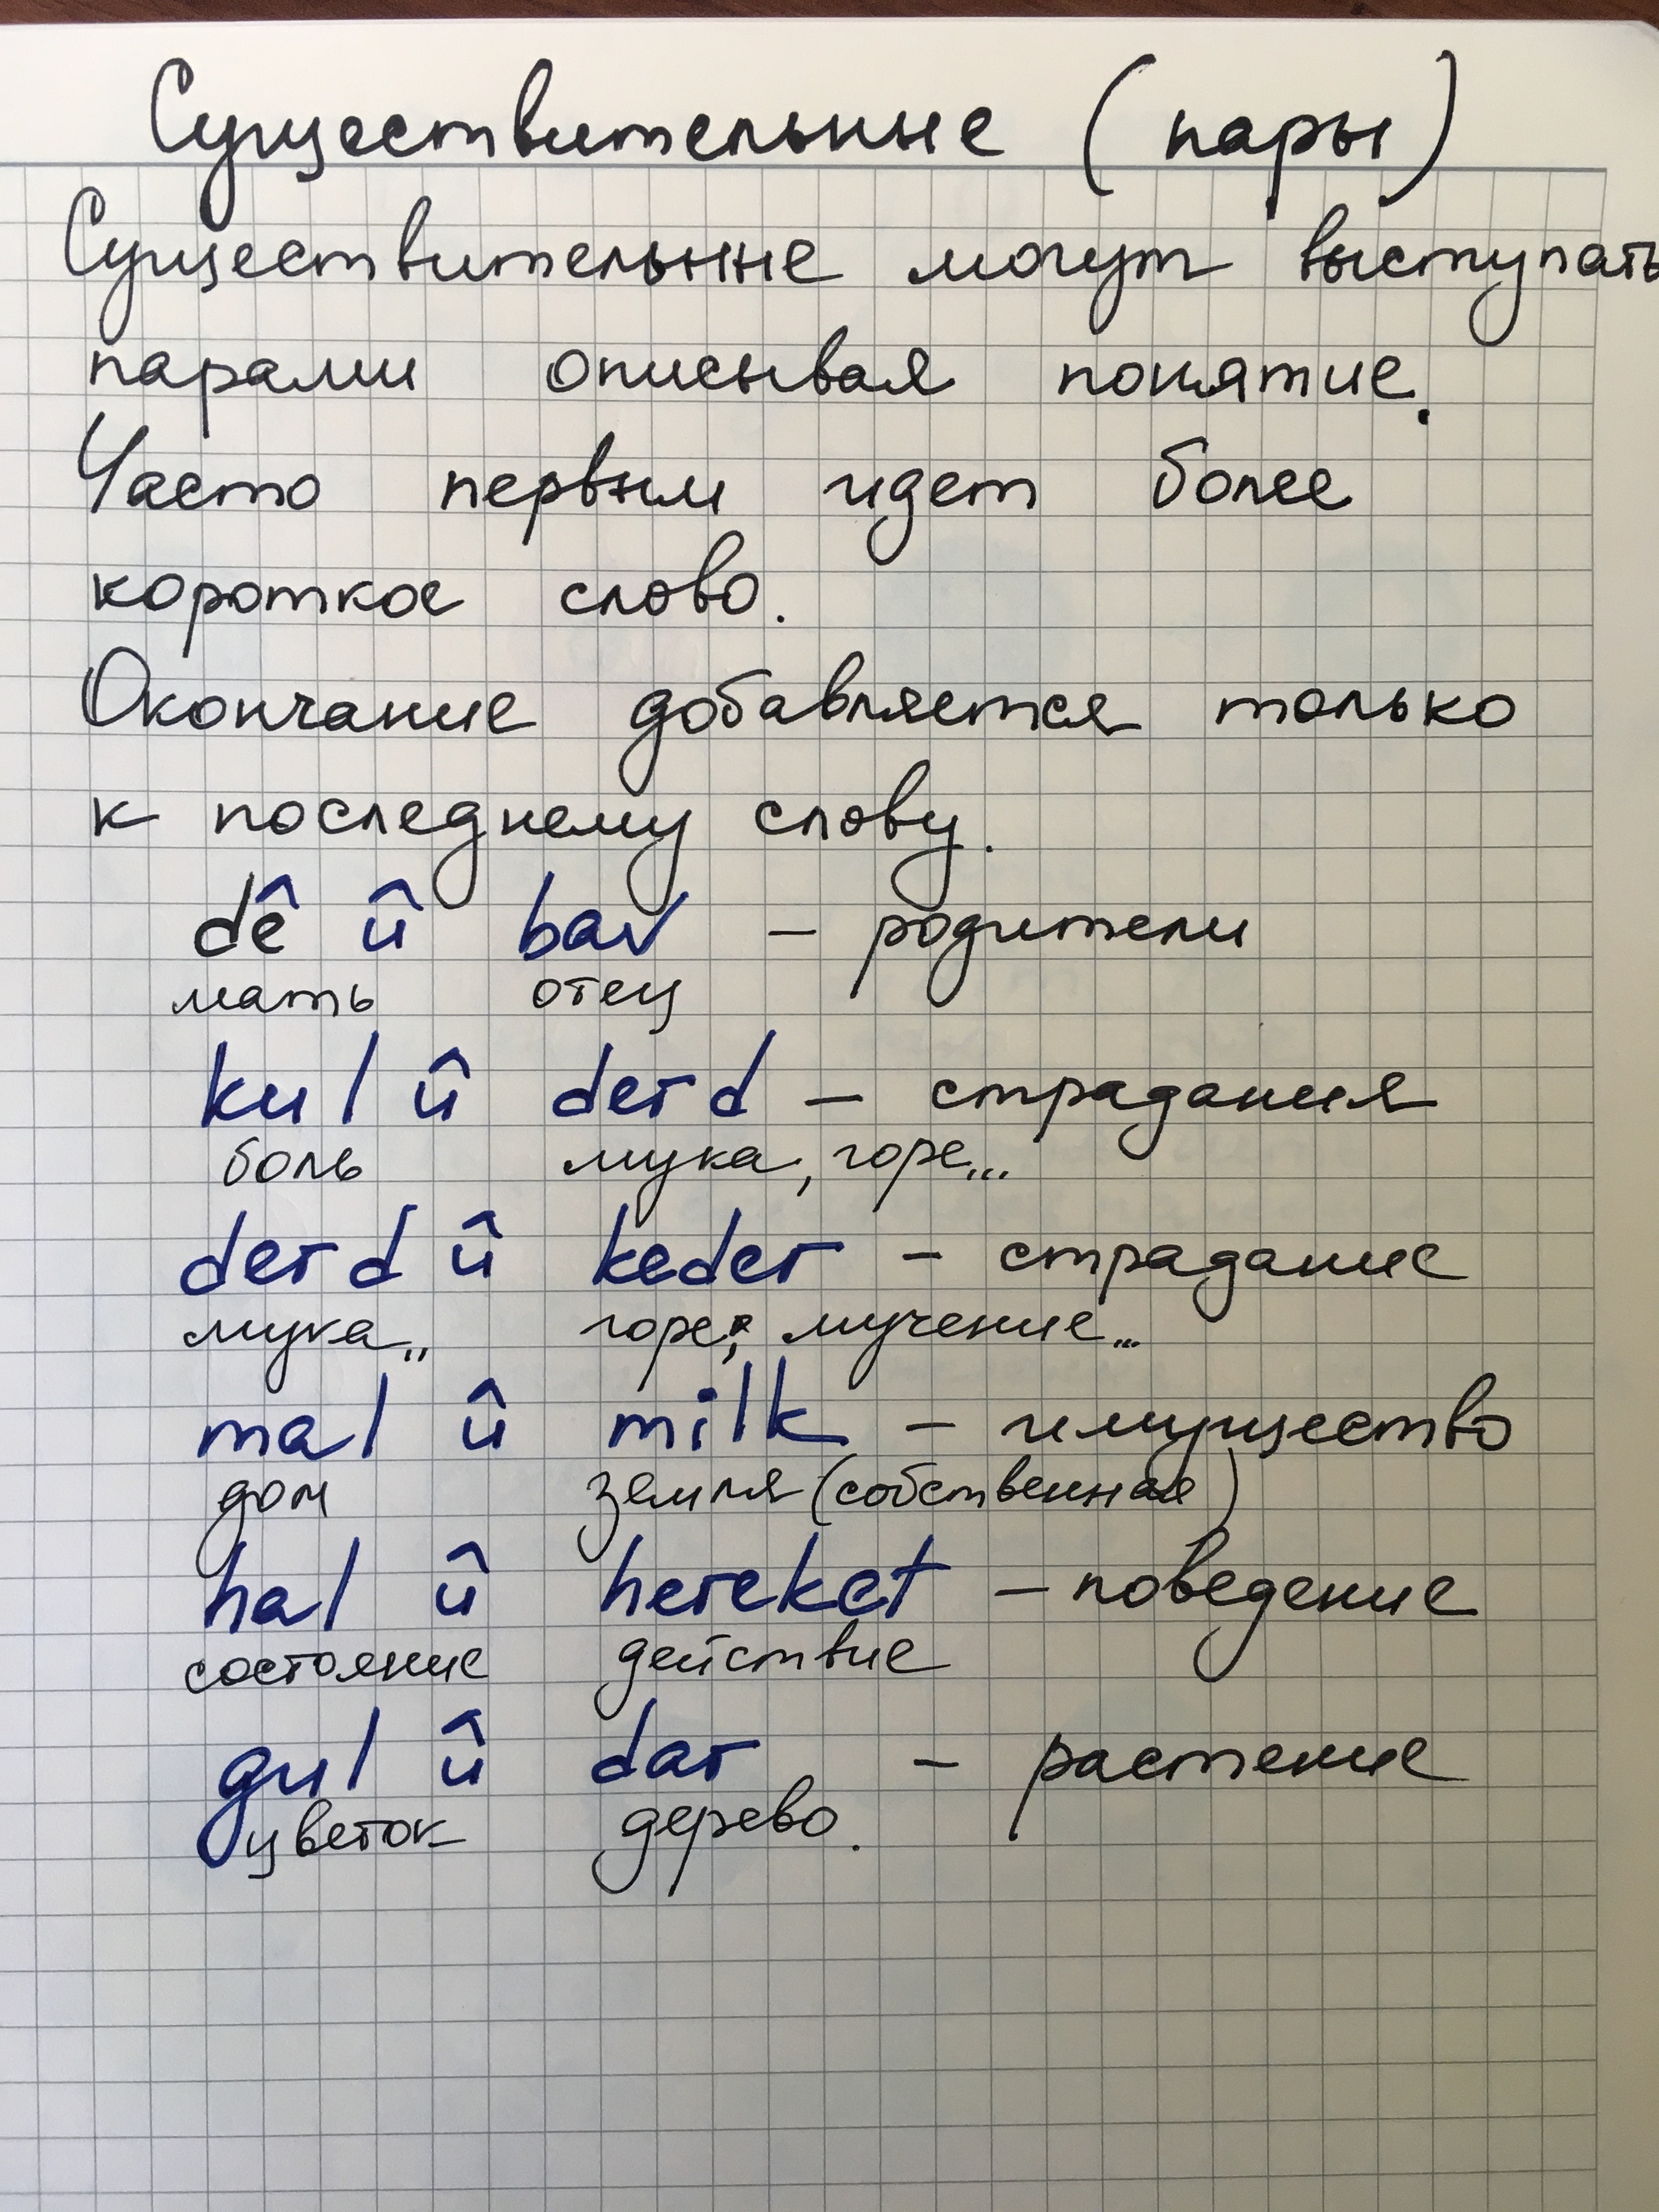 Существительные (пары)
Существительные могут выступать
парами описывая понятие.
Часто первым идет более
короткое слово.
Окончание добавляется только
к последнему слову.
dê û bav – родители
мать отец
kul û derd – страдания
боль мука, горе...
derd û keder – страдание
мука,, горе, мучение...
mal û milk – имущество
дом земля (собственная)
hal û hereket – поведение
состояние действие
gul û dar – растение
цветок дерево.